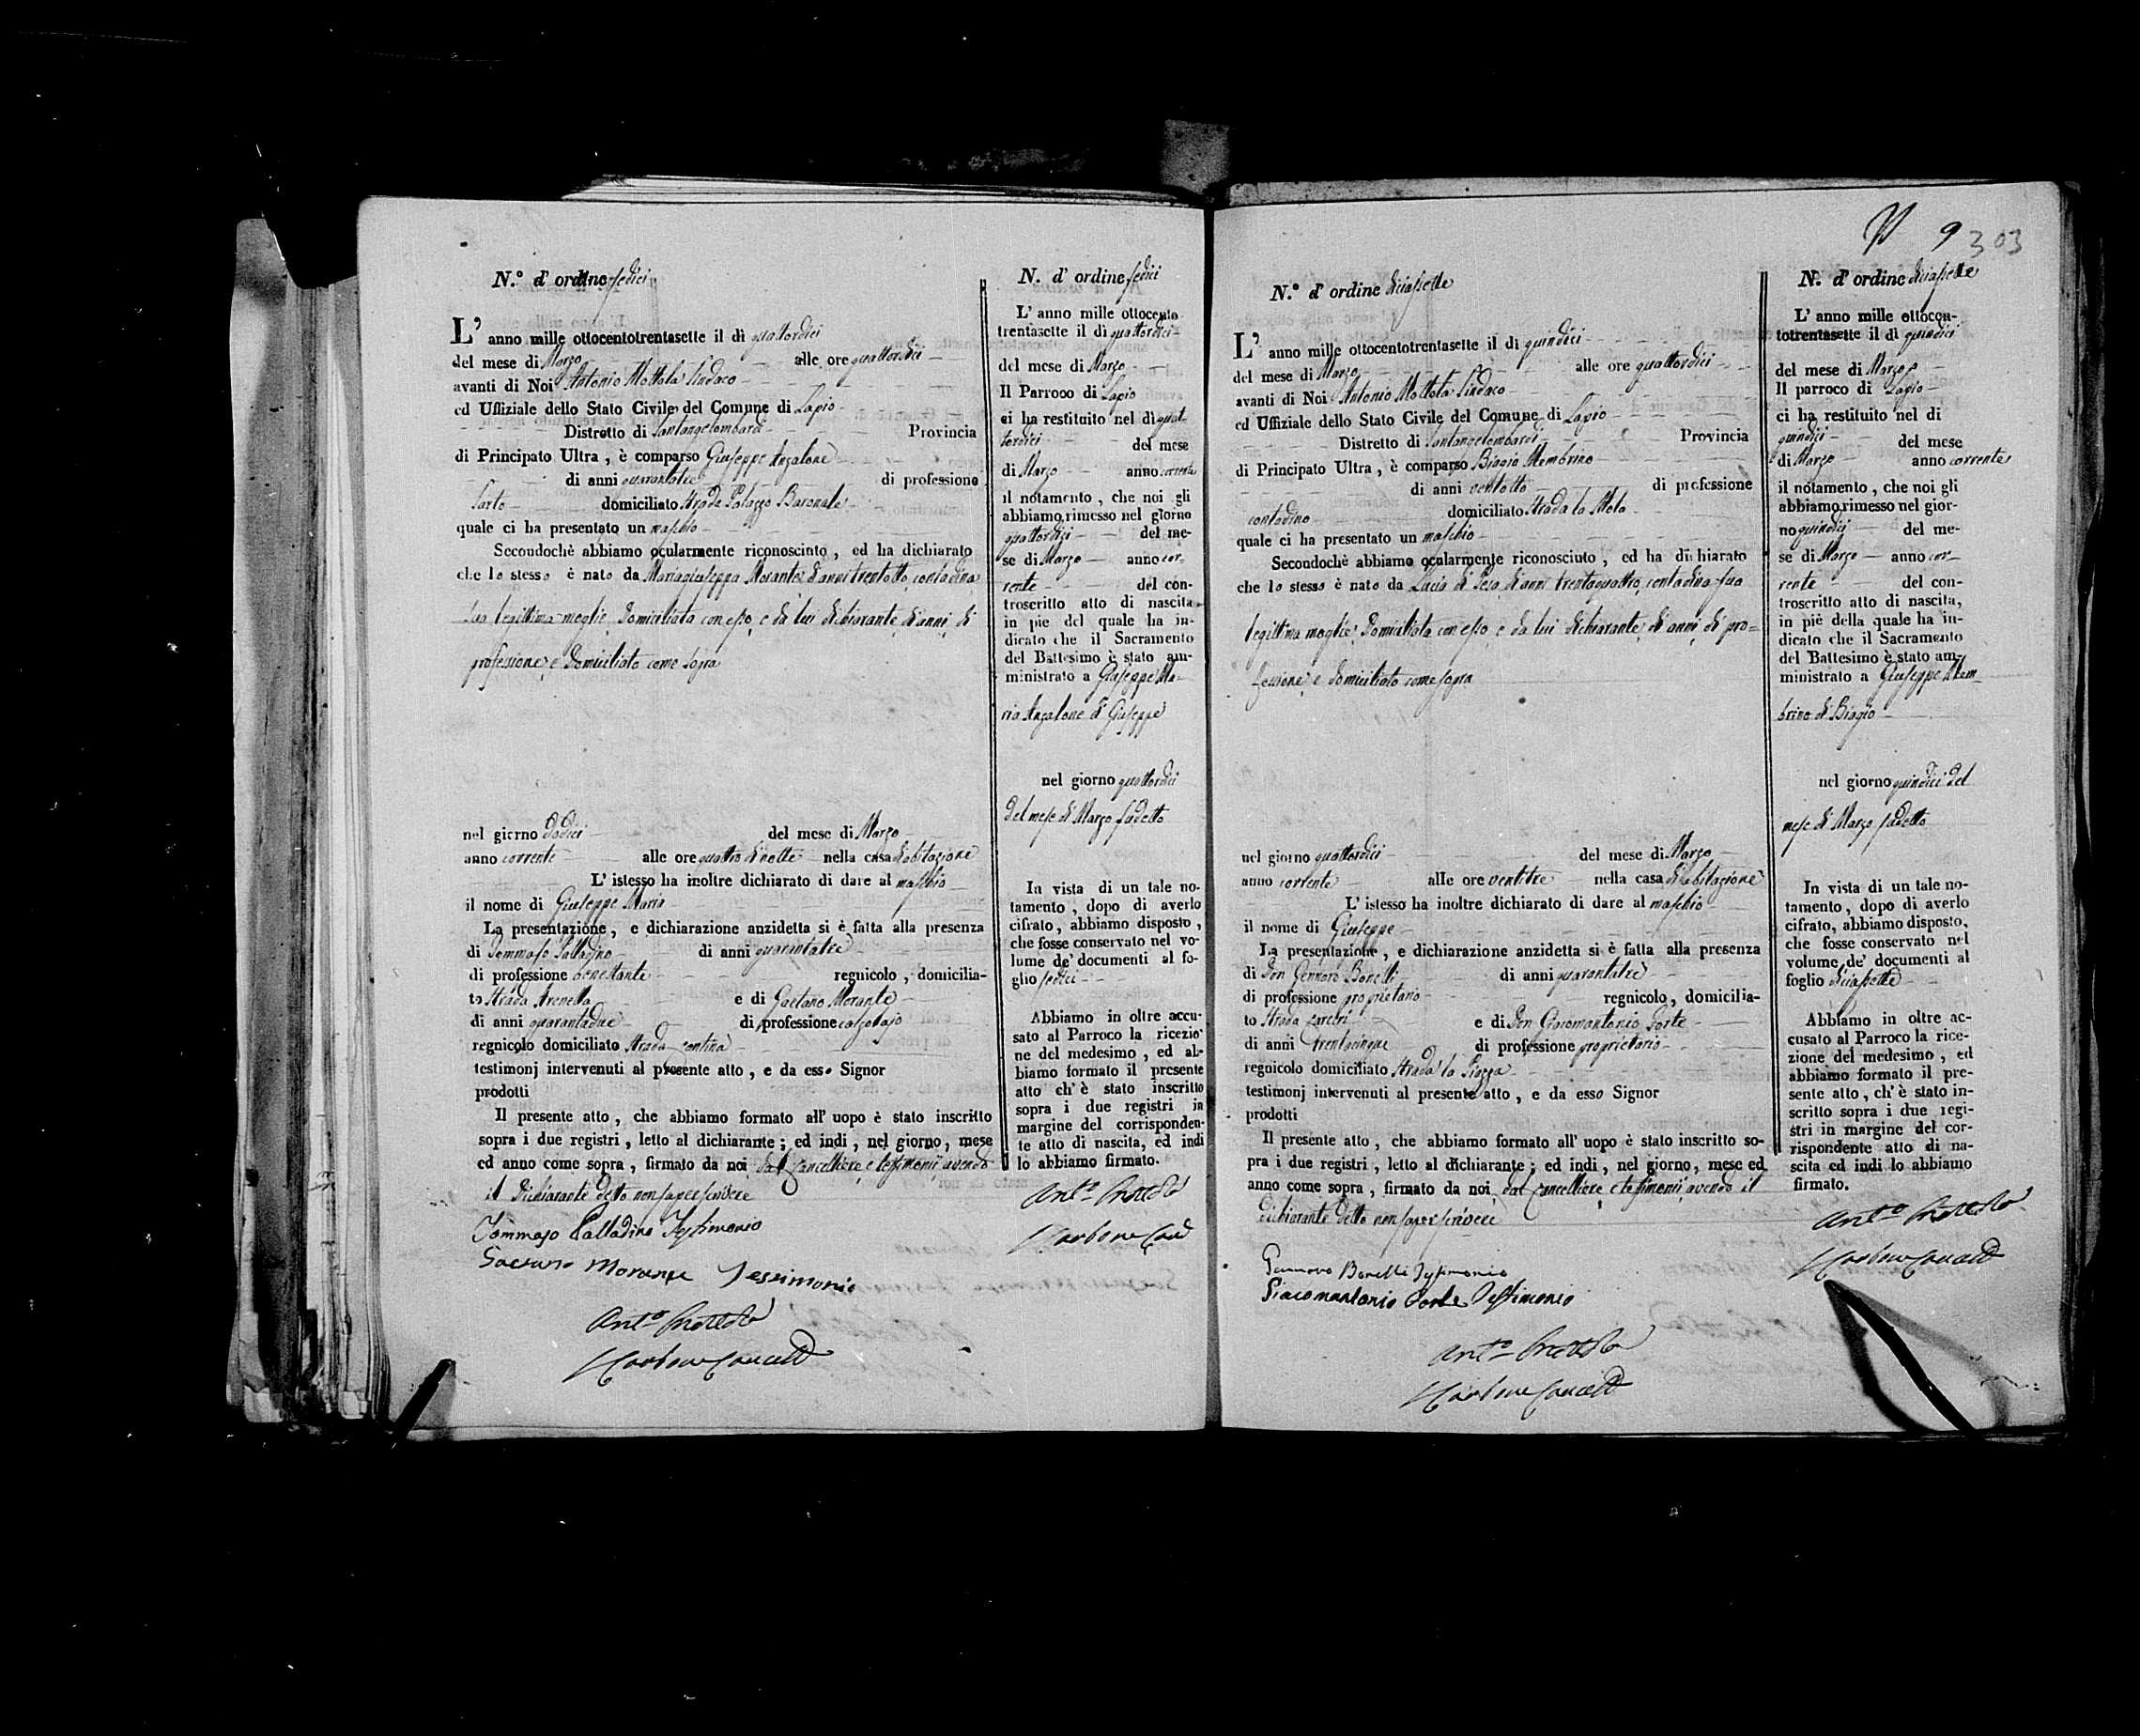 N.º d' ordine sedici
L' anno mille ottocentotrentasette il dì quattordici
del mese di Marzo alle ore quattordici
avanti di Noi Antonio Mottola Sindaco
ed Uffiziale dello Stato Civile del Comune di Lapio
Distretto di Santangelombardi Provincia
di Principato Ultra, è comparso Giuseppe Anzalone
di anni quarantatre di professione
sarto domiciliato Strada Palazzo Baronale
quale ci ha presentato un maschio
Secondochè abbiamo ocularmente riconosciuto, ed ha dichiarato
che lo stesso è nato da Mariagiuseppa Morante di anni trentotto contadina
sua legittima moglie domiciliata con esso, e da lui dichiarante di anni, di
professione, e domiciliato come sopra
nel giorno dodici del mese di Marzo
anno corrente alle ore quattro di notte nella casa d'abitazione
L' istesso ha inoltre dichiarato di dare al maschio
il nome di Giuseppe Maria
La presentazione, e dichiarazione anzidetta si è fatta alla presenza
di Tommaso Palladino di anni quarantatre
di professione benestante regnicolo, domicilia-
to Strada Arenella e di Gaetano Morante
di anni quarantadue di professione calzolajo
regnicolo domiciliato Strada
testimonj intervenuti al presente atto, e da esso Signor
prodotti
Il presente atto, che abbiamo formato all' uopo è stato inscritto
sopra i due registri, letto al dichiarante; ed indi, nel giorno, mese
ed anno come sopra, firmato da noi dal Cancelliere, e testimonii avendo
il dichiarante detto non saper scrivere
Tommaso Palladino Testimonio
Gaetano Morante Testimonio
Ant.º Mottola
Carbone Canc
N. d' ordine sedici
L' anno mille ottocento
trentasette il dì quattordici
del mese di Marzo
Il Parroco di Lapio
ci ha restituito nel dì quat-
tordici del mese
di Marzo anno corrente
il notamento, che noi gli
abbiamo rimesso nel giorno
quattordici del me-
se di Marzo anno cor-
rente del con-
troscritto atto di nascita
in piè del quale ha in-
dicato che il Sacramento
del Battesimo è stato am-
ministrato a Giuseppe Ma-
ria Anzalone di Giuseppe
nel giorno quattordici
del mese di Marzo sudetto
In vista di un tale no-
tamento, dopo di averlo
cifrato, abbiamo disposto,
che fosse conservato nel vo-
lume de' documenti al fo-
glio sedici
Abbiamo in oltre accu-
sato al Parroco la ricezio
ne del medesimo, ed ab-
biamo formato il presente
atto ch' è stato inscritto
sopra i due registri in
margine del corrisponden-
te atto di nascita, ed indi
lo abbiamo firmato.
Ant.º Mottola
Carbone Canc
9 303
N.º d' ordine diciassette
L' anno mille ottocentotrentasette il dì quindici
del mese di Marzo alle ore quattordici
avanti di Noi Antonio Mottola Sindaco
ed Uffiziale dello Stato Civile del Comune di Lapio
Distretto di Santangelombardi Provincia
di Principato Ultra, è comparso Biagio Membrino
di anni ventotto di professione
contadino domiciliato Strada la Mola
quale ci ha presentato un maschio
Secondochè abbiamo ocularmente riconosciuto, ed ha dichiarato
che lo stesso è nato da Lucia di anni trentaquattro, contadina sua
legittima moglie domiciliata con esso, e da lui dichiarante, di anni, di pro=
fessione, e domiciliato come sopra
nel giorno quattordici del mese di Marzo
anno corrente alle ore ventitre nella casa d'abitazione
L' istesso ha inoltre dichiarato di dare al maschio
il nome di Giuseppe
La presentazione, e dichiarazione anzidetta si è fatta alla presenza
di Don Gennaro Bonelli di anni quarantatre
di professione proprietario regnicolo, domicilia-
to Strada Carceri e di Don Giacomantonio Forte
di anni trentacinque di professione proprietario
regnicolo domiciliato Strada la Piazza
testimonj intervenuti al presente atto, e da esso Signor
prodotti
Il presente atto, che abbiamo formato all' uopo è stato inscritto so-
pra i due registri, letto al dichiarante; ed indi, nel giorno, mese ed
anno come sopra, firmato da noi, dal Cancelliere, e testimonii avendo il
dichiarante detto non saper scrivere
Gennaro Bonelli Testimonio
Giacomantonio Forte Testimonio
Ant.º Mottola
Carbone Canc
N. d' ordine diciassette
L' anno mille ottocen-
totrentasette il dì quindici
del mese di Marzo
Il parroco di Lapio
ci ha restituito nel dì
quindici del mese
di Marzo anno corrente
il notamento, che noi gli
abbiamo rimesso nel gior-
no quindici del me-
se di Marzo anno cor-
rente del con-
troscritto atto di nascita,
in piè della quale ha in-
dicato che il Sacramento
del Battesimo è stato am-
ministrato a Giuseppe Mem-
brino di Biagio
nel giorno quindici del
mese di Marzo sudetto
In vista di un tale no-
tamento, dopo di averlo
cifrato, abbiamo disposto,
che fosse conservato nel
volume de' documenti al
foglio diciassette
Abbiamo in oltre ac-
cusato al Parroco la rice-
zione del medesimo, ed
abbiamo formato il pre-
sente atto, ch' è stato in-
scritto sopra i due regi-
stri in margine del cor-
rispondente atto di na-
scita ed indi lo abbiamo
firmato.
Ant.º Mottola
Carbone Canc